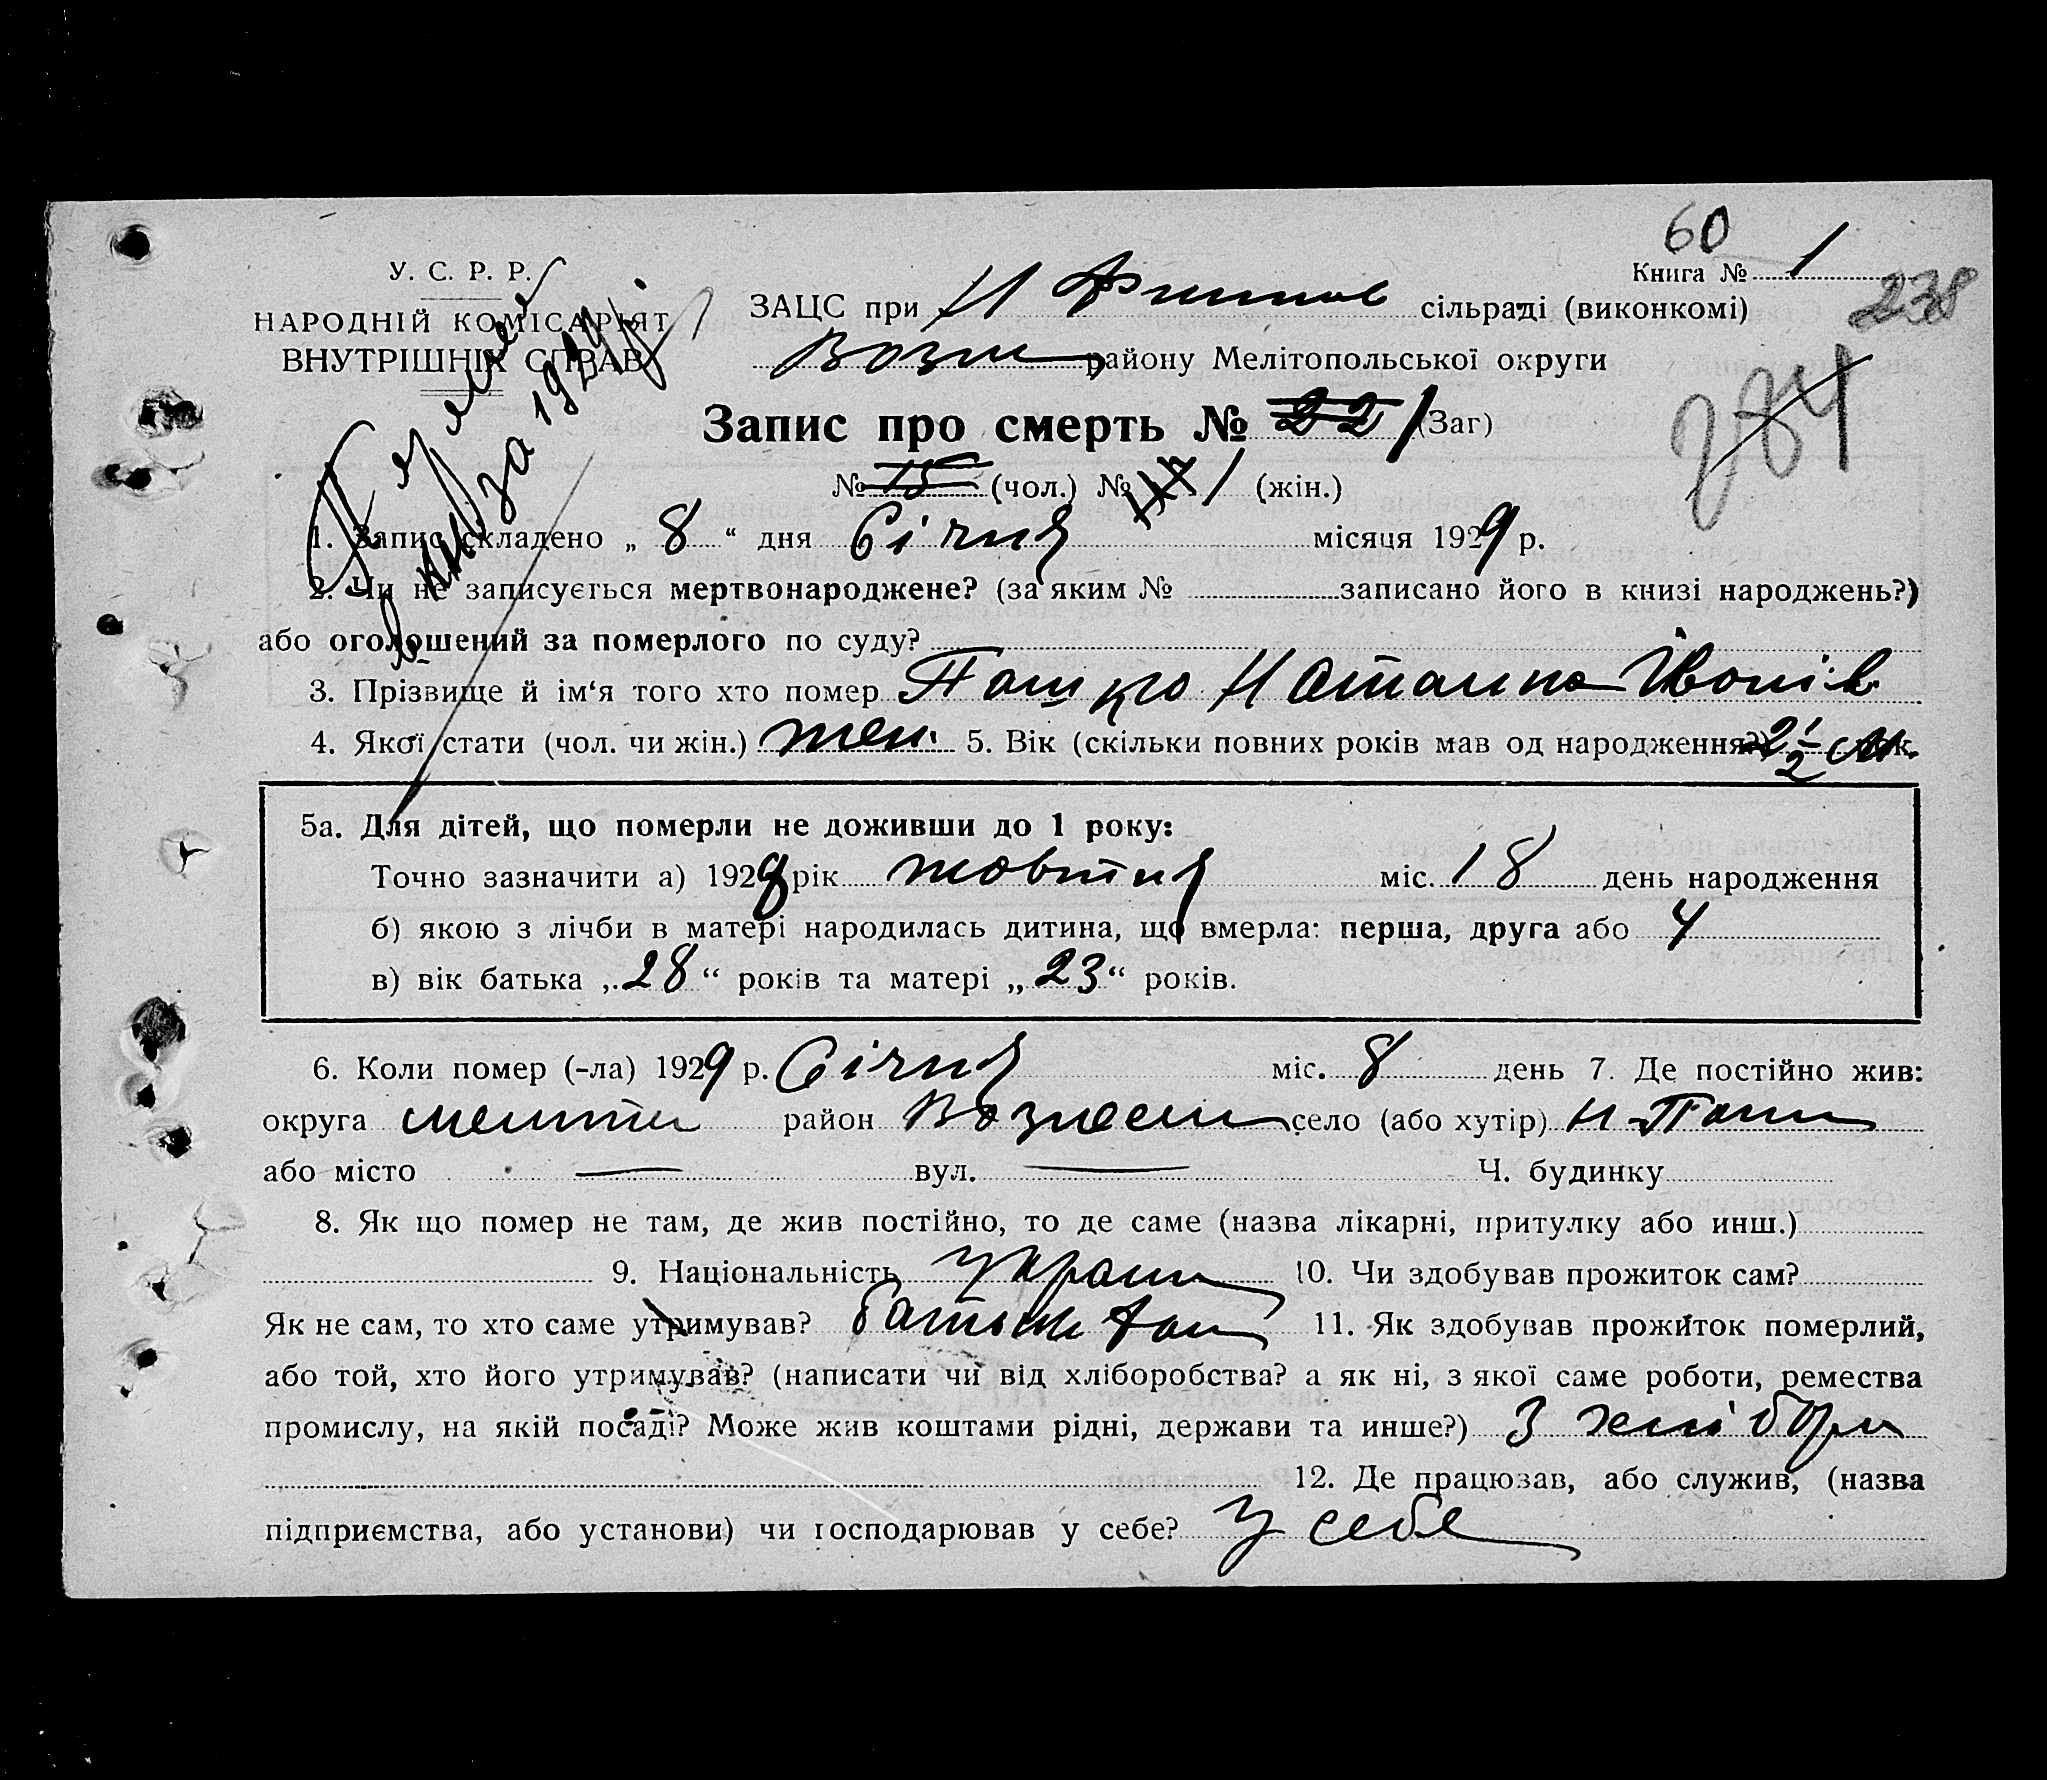 60
У. С. Р. Р.
Книга № 1
НАРОДНІЙ КОМІСАРІЯТ
ВНУТРІШНІХ СПРАВ
238
ЗАЦС при Н сільраді (виконкомі)
Возн району Мелітопольської округи
284
Запис про смерть № 22 1 (Заг)
№ 15 (чол.) № 1 (жін.)
в за 1929
1. Запис складено „ 8 “ дня Січня місяця 1929 р.
2. Чи не записується мертвонароджене? (за яким № записано його в книзі народжень?)
або оголошений за померлого по суду?
3. Прізвище й ім‘я того хто помер Пашко Наталка Іванів
4. Якої стати (чол. чи жін.) жен. 5. Вік (скільки повних років мав од народження?) 2 1/2 м.
5а. Для дітей, що померли не доживши до 1 року:
Точно зазначити а) 1928 рік жовтня міс. 18 день народження
б) якою з лічби в матері народилась дитина, що вмерла: перша, друга або 4
в) вік батька „ 28 “ років та матері „ 23 “ років.
6. Коли помер (-ла) 1929 р. Січня міс. 8 день 7. Де постійно жив:
округа район Вознесен село (або хутір)
або місто — вул. — Ч. будинку
8. Як що помер не там, де жив постійно, то де саме (назва лікарні, притулку або инш.)
9. Національність Україн 10. Чи здобував прожиток сам?
Як не сам, то хто саме утримував? 11. Як здобував прожиток померлий,
або той, хто його утримував? (написати чи від хліборобства? а як ні, з якої саме роботи, ремества
промислу, на якій посаді? Може жив коштами рідні, держави та инше?) З хлібор
12. Де працював, або служив, (назва
підприємства, або установи) чи господарював у себе? У себе